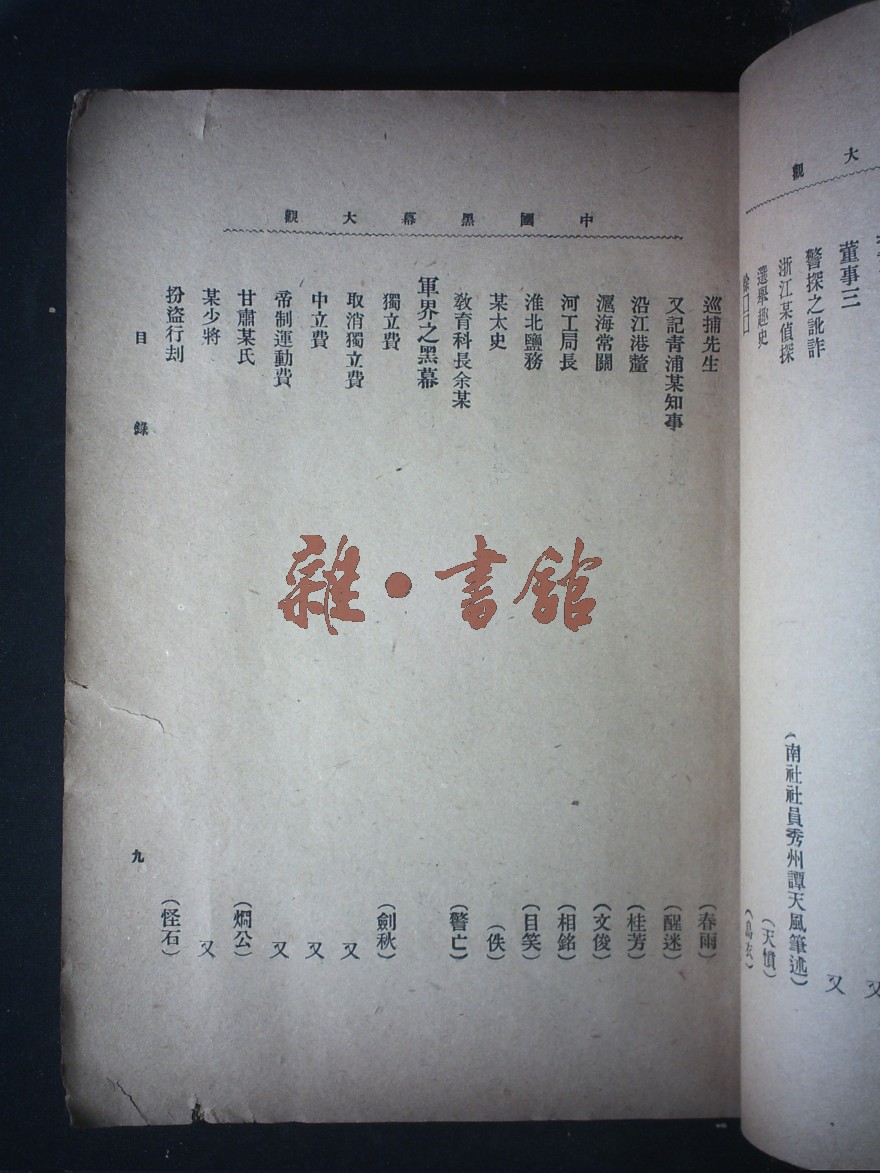 大觀
董事三
又
警探之訛詐
又
浙江某偵探
(南社社員秀州譚天風筆述)
選舉趣史
(天憤)
中國黑幕大觀
巡捕先生
(春雨)
又記青浦某知事
(醒迷)
沿江港釐
(桂芳)
滬海常關
(文俊)
河工局長
(相銘)
淮北鹽務
(目笑)
某太史
(佚)
教育科長余某
(警亡)
軍界之黑幕
獨立費
(劍秋)
取消獨立費
又
中立費
又
帝制運動費
又
甘肅某氏
(烱公)
某少將
又
扮盜行刦
(怪石)
目錄
九
雜·書館